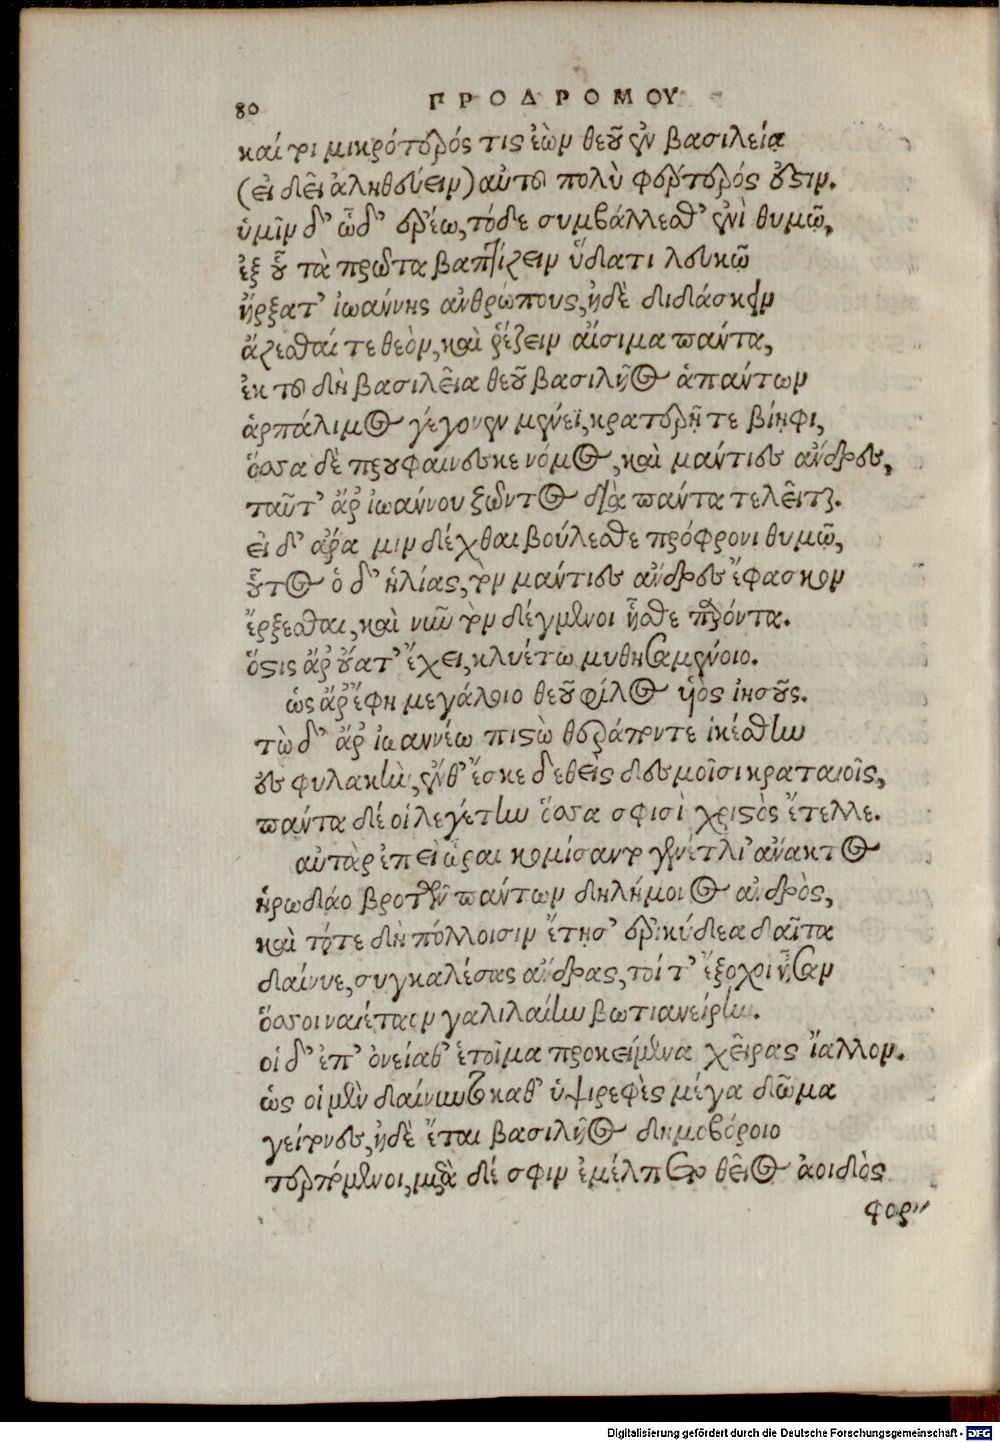 80 ΠΡΟΔΡΟΜΟΥ
καί τι μικρότερός τις ἐὼν θεοῦ ἐν βασιλείᾳ
(εἰ δεῖ ἀληθεύειν) αὐτοῦ πολὺ φέρτερός ἐστιν.
ὑμῖν δ' ὧδ' ἐρέω, τόδε συμβάλλεσθ' ἐνὶ θυμῷ,
ἐξ οὗ τὰ πρῶτα βαπτίζειν ὕδατι λευκῷ
ἤρξατ' ἰωάννης ἀνθρώπους, ἠδὲ διδάσκειν
ἅζεσθαί τε θεὸν, καὶ ῥέζειν αἴσιμα πάντα,
ἐκ τοῦ δὴ βασιλεία θεοῦ βασιλῆος ἁπάντων
ἁρπάλιμος γέγονεν μένεϊ, κρατερῇ τε βίηφι,
ὅσσα δὲ προὔφαινεσκε νόμος, καὶ μάντιες ἄνδρες,
ταῦτ' ἄρ ἰωάννου ζῶντος διὰ πάντα τελεῖται.
εἰ δ' ἄρα μιν δέχθαι βούλεσθε πρόφρονι θυμῷ,
οὗτος ὁ δ' ἠλίας, τὸν μάντιες ἄνδρες ἔφασκον
ἔρξεσθαι, καὶ νῦν τὸν δέγμενοι ἦσθε παρόντα.
ὅστις ἄρ οὔατ' ἔχει, κλυέτω μυθησαμένοιο.
ὡς ἄρ ἔφη μεγάλοιο θεοῦ φίλος υἱὸς ἰησοῦς.
τὼ δ' ἄρ ἰωαννέω πιστὼ θεράποντε ἱκέσθην
ἐς φυλακὴν, ἔνθ' ἔσκε δεθεὶς δεσμοῖσι κραταιοῖς,
πάντα δέ οἱ λεγέτην ὅσσα σφισὶ χριστὸς ἔτελλε.
αὐτὰρ ἐπεὶ ὧραι κόμισαν γενέτλι' ἄνακτος
ἡρωδιάο βροτῶν πάντων δηλήμονος ἀνδρὸς,
καὶ τότε δὴ πόλλοισιν ἔτῃσ' ἐρικύδεα δαῖτα
δαίνυε, συγκαλέσας ἄνδρας, τοί τ' ἔξοχοι ἦσαν
ὅσσοι ναιέτασν γαλιλαίην βωτιανείρην.
οἱ δ' ἐπ' ὀνείαθ' ἑτοῖμα προκείμενα χεῖρας ἴαλλον.
ὡς οἱ μὲν δαίνυντο καθ' ὑψιρεφὲς μέγα δῶμα
γείτονες, ἠδὲ ἔται βασιλῆος δημοβόροιο
τερπόμενοι, μετὰ δέ σφιν ἐμέλπετο θεῖος ἀοιδὸς
φορ〃
Digitalisierung gefördert durch die Deutsche Forschungsgemeinschaft - DFG